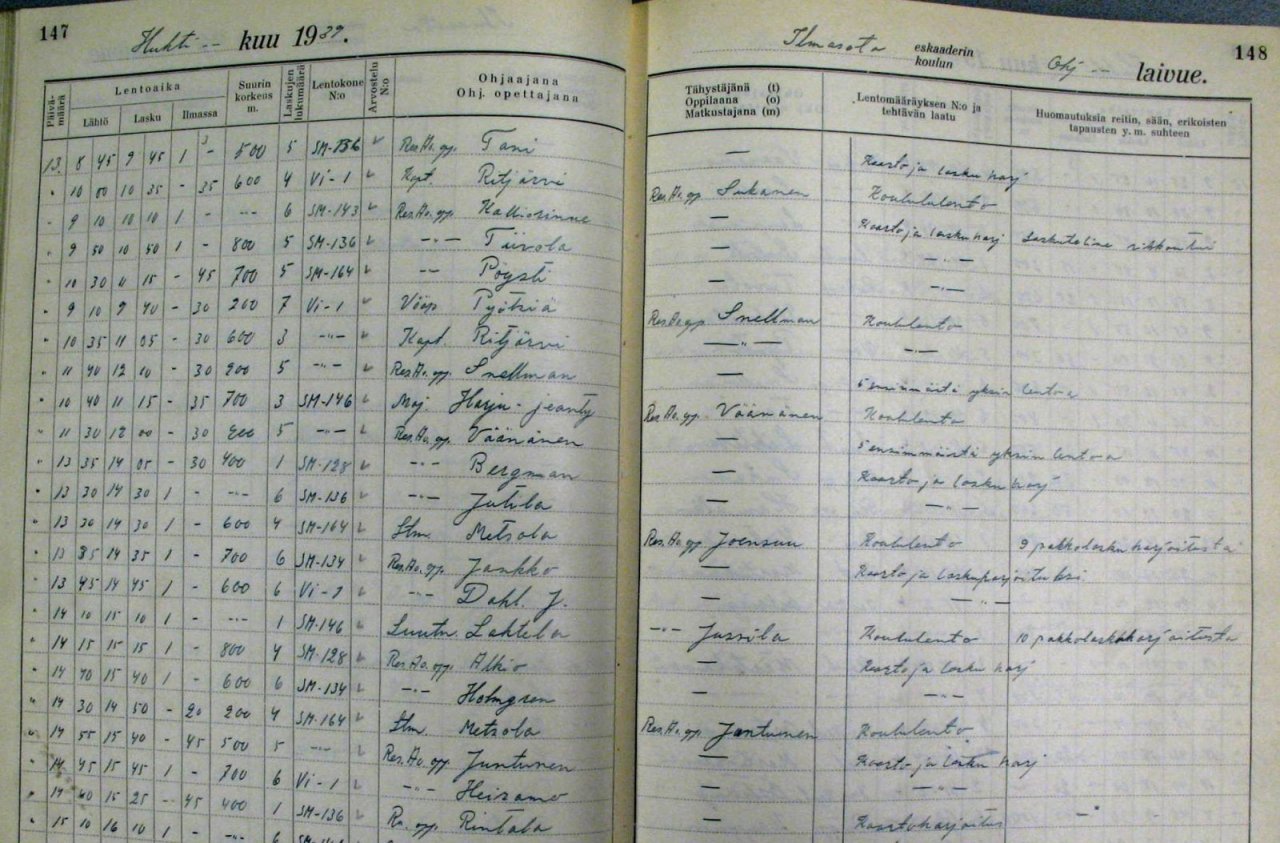 147
Huhti -- kuu 1939.
Päivämäärä
Lentoaika
Lähtö Lasku Ilmassa
Suurin korkeus m.
Laskujen lukumäärä
Lentokone N:o
Arvostelu N:o
Ohjaajana
Ohj. opettajana
13. 8 45 9 45 1 - 500 5 SM-136 Res.Au.opp. Tani
" 10 00 10 35 - 35 600 4 Vi-1 Kapt. Ritjärvi
" 9 10 10 10 1 - -"- 6 SM-143 Res.Au.opp. Kalliorinne
" 9 50 10 50 1 - 800 5 SM-136 -"- Tiivola
" 10 30 11 15 - 45 700 5 SM-164 -"- Pöysti
" 9 10 9 40 - 30 200 7 Vi-1 Vääp. Pyötsiä
" 10 35 11 05 - 30 600 3 -"- Kapt. Ritjärvi
" 11 40 12 10 - 30 200 5 -"- Res.Au.opp. Snellman
" 10 40 11 15 - 35 700 3 SM-146 Maj. Harju-Jeanty
" 11 30 12 00 - 30 5 -"- Res.Au.opp. Väänänen
" 13 35 14 05 - 30 400 1 SM-128 -"- Bergman
" 13 30 14 30 1 - -"- 6 SM-136 -"- Jutila
" 13 30 14 30 1 - 600 4 SM-164 Ltm. Metsola
" 13 35 14 35 1 - 700 6 SM-134 Res.Au.opp. Jaakko
" 13 45 14 45 1 - 600 6 Vi-7 -"- Dahl. J.
" 14 10 15 10 1 - -"- 1 SM-146 Luutn. Lahtela
" 14 15 15 15 1 - 800 4 SM-128 Res.Au.opp. Alhio
" 14 40 15 40 1 - 600 6 SM-134 -"- Holmgren
" 14 30 14 50 - 20 200 4 SM-164 Ltm. Metsola
" 14 55 15 40 - 45 500 5 -"- Res.Au.opp. Juntunen
" 14 45 15 45 1 - 700 6 Vi-1 -"- Heisamo
" 14 40 15 25 - 45 400 1 SM-136 Rintala
" 15 10 16 10 1 - -"- 6
Ilmasota eskaaderin koulun Ohj -- laivue.
148
Tähystäjänä (t)
Oppilaana (o)
Matkustajana (m)
Lentomääräyksen N:o ja tehtävän laatu
Huomautuksia reitin, sään, erikoisten tapausten y. m. suhteen
— Kaarto ja lasku harj
Res.Au.opp. Sukanen Koululento
— Kaarto ja lasku harj Laskuteline rikkoutui
— -"-
— -"-
Res.Au.opp. Snellman Koululento
—"— -"-
6 ensimmäistä yksin lentoa
Res.Au.opp. Väänänen Koululento
— 5 ensimmäistä yksin lentoa
— Kaarto ja lasku harj
— -"-
Res.Au.opp. Joensuu Koululento 9 pakkolasku harjoitusta
— Kaarto ja laskuharjoituksi
— -"-
-"- Jussila Koululento 10 pakkolaskuharjoitusta
— Kaarto ja lasku harj
— -"-
Res.Au.opp. Juntunen Koululento
— Kaarto ja lasku harj
— -"-
— Kaartoharjoitus -